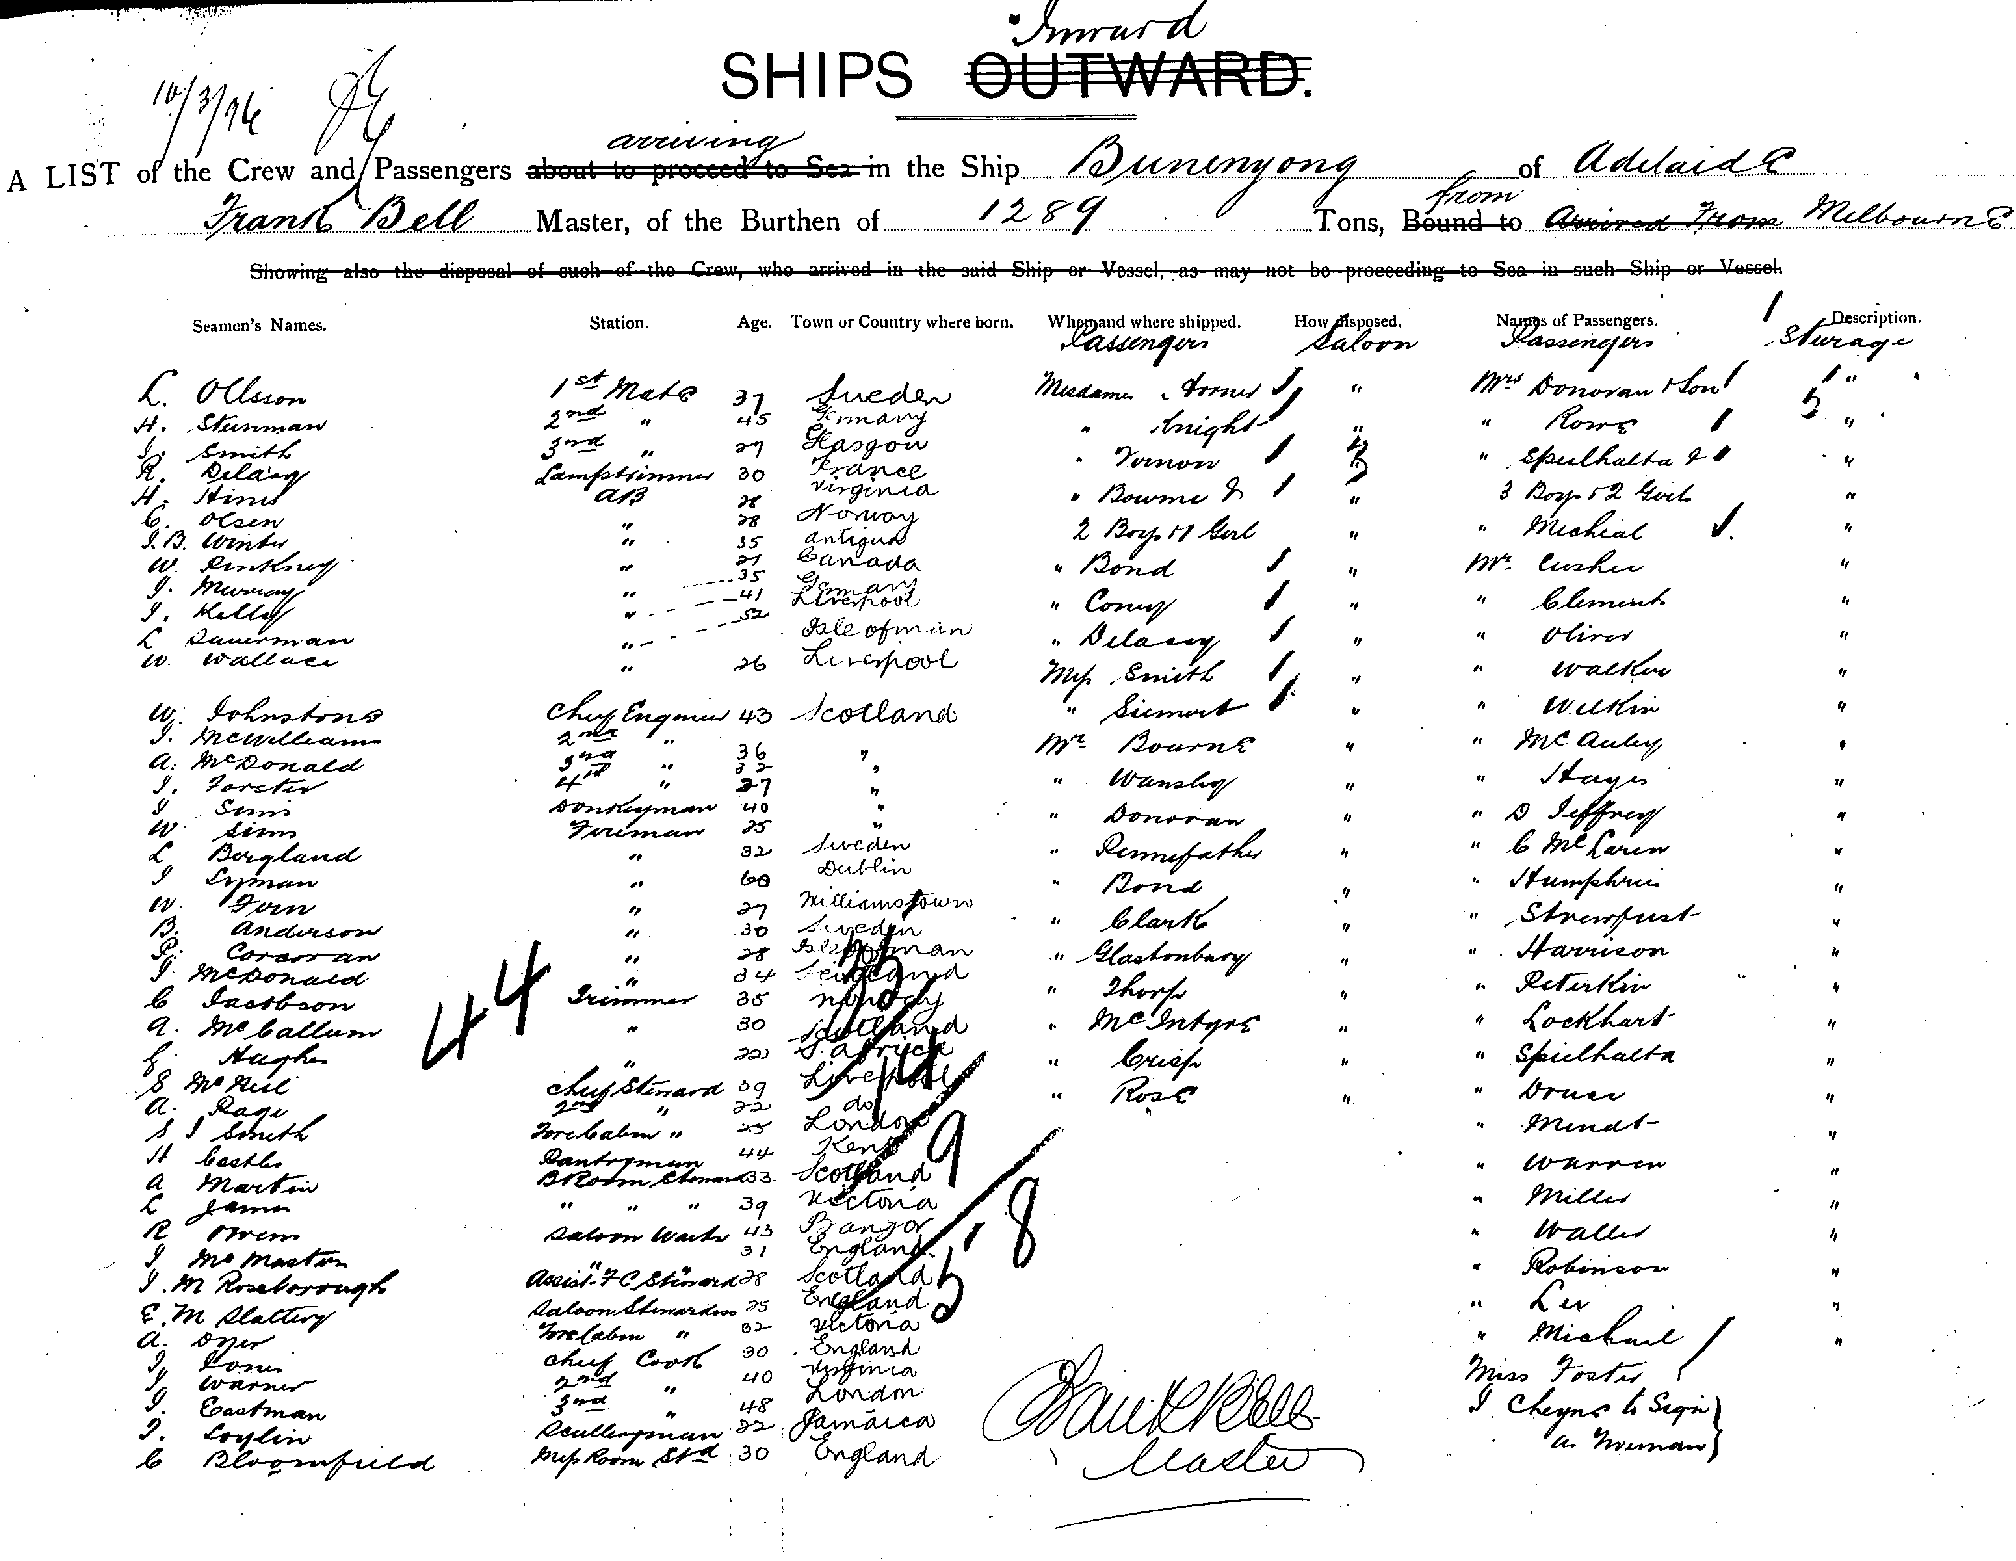 Inward
SHIPS OUTWARD.
10/3/96
arriving
A LIST of the Crew and Passengers about to proceed to Sea in the Ship Buninyong of Adelaide
from
Frank Bell Master, of the Burthen of 1289 Tons, Bound to Arrived From Melbourne
Showing also the disposal of such of the Crew, who arrived in the said Ship or Vessel, as may not be proceeding to Sea in such Ship or Vessel.
Seamen's Names. Station. Age. Town or Country where born. When and where shipped. How disposed. Names of Passengers. Description.
Passengers Saloon Passengers Sturage
L. Ollsson 1st Mate 37 Sweden Mesdames " Mrs Donovan & Son "
H. Stenman 2nd " 45 Germany " Knight " " Rowe "
J. Smith 3rd " 29 Glasgow " Vernon " Spielhalta & "
R. Delacy Lamptrimmer 30 France " Bowme & " 3 Boys & 2 Girls "
H. Hines AB 28 Virginia 2 Boys & 1 Girl " " Micheal "
C. Olsen " 28 Norway " Bond " Mr. Cusher "
J.B. Winter " 35 Antigua " " " Clement "
W. Pinkney " 27 Canada " Delacy " " Oliver "
J. Murray " 35 Germany Miss Smith " " Walker "
J. Kelly " 41 Liverpool " Siemort " " Wilkin "
L Sauerman " 52 Isle of man Mr. Bourne " " McAuley "
W. Wallace " 26 Liverpool " Wansley " " Hayes "
W. Johnstone Chief Engineer 43 Scotland " Donovan " " D Jeffrey "
J. McWilliams 2nd " 36 " " Pennefather " " C McLaren "
A. McDonald 3rd " 32 " " Bond " " Humphries "
J. Forster 4th " 27 " " Clark " "
J Sims Donkeyman 40 " " Glastonbury " " Harrison "
W. Sims Fireman 25 " " Thorp " " Peterkin "
L Borgland " 32 Sweden " McIntyre " " Lockhart "
J Lyman " 60 Dublin " Crisp " " Spielhalta "
W. Forn " 27 Williamstown " Rose " " Druce "
B. Anderson " 30 Sweden " Mendt "
P. Corcoran " 28 Isle of man " Warren "
J. McDonald " 34 Scotland " Miller "
C Jacobson Trimmer 35 Norway " Waller "
A. McCallum " 30 Scotland " Robinson "
E. Hughes " 22 S. Africa " Lee "
S McNeil Chief Steward 39 Liverpool " Michael "
A. Page 2nd " 22 do Miss Foster
S J Smith Forecabin " 25 London J Cheyne to Sign
H Castle Pantryman 44 Kent as Fireman
A Martin B Room Steward 33 Scotland
L James " " " 39 Victoria
R Owens Saloon Waiter 43 Bangor
J McMaster " 31 England
J. M Roseborough Assist. F C Steward 28 Scotland
E. M Slattery Saloon Stewardess 25 England
A. Dyer Forecabin " 32 Victoria
J. Jones Chief Cook 30 England
J Warner 2nd " 40 Virginia
J. Eastman 3rd " 48 London
J. Loylin Sculleryman 22 Jamaica
C Bloomfield Mess Room Std 30 England
44
9
8
5
Frank Bell
Master